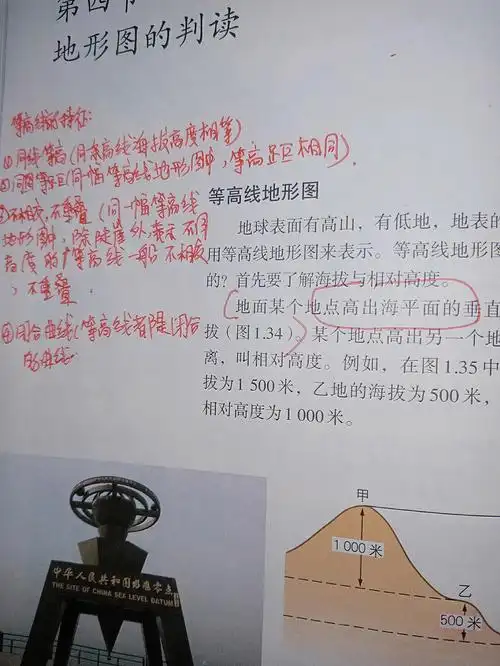 第四节
地形图的判读
等高线的特征:
①同线等高(同条等高线海拔高度相等)
②同图等距(同一幅等高线地形图中,等高距相同).
③不相交,不重叠(同一幅等高线
地形图中,除陡崖外,表示不同
高度的等高线一般不相交
,不重叠
④闭合曲线(等高线都是闭合
的曲线
等高线地形图
地球表面有高山,有低地,地表的
用等高线地形图来表示。等高线地形图
的?首先要了解海拔与相对高度。
地面某个地点高出海平面的垂直
拔(图1.34)。某个地点高出另一个地
离,叫相对高度。例如,在图1.35中
拔为1 500米,乙地的海拔为500米,
相对高度为1 000米。
中华人民共和国水准零点
THE SITE OF CHINA SEA LEVEL DATUM
甲
1 000米
乙
500米